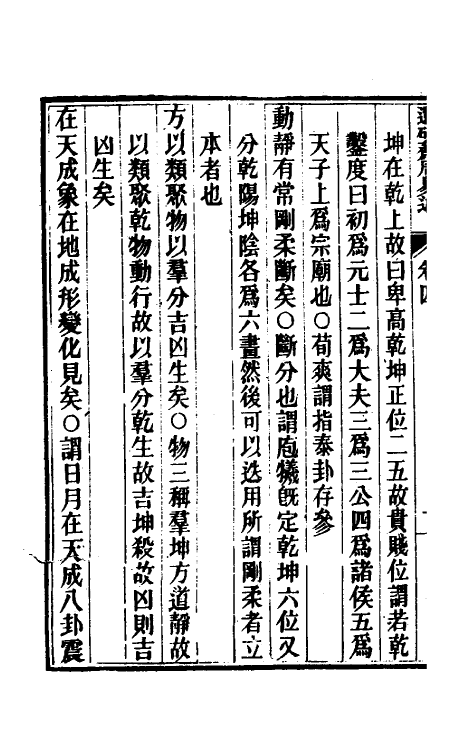 卷四
坤在乾上故曰卑高乾坤正位二五故貴賤位謂若乾
鑿度曰初爲元士二爲大夫三爲三公四爲諸侯五爲
天子上爲宗廟也○荀爽謂指泰卦存參
動靜有常剛柔斷矣○斷分也謂庖犧旣定乾坤六位又
分乾陽坤陰各爲六畫然後可以迭用所謂剛柔者立
本者也
方以類聚物以羣分吉凶生矣○物三稱羣坤方道靜故
以類聚乾物動行故以羣分乾生故吉坤殺故凶則吉
凶生矣
在天成象在地成形變化見矣○謂日月在天成八卦震